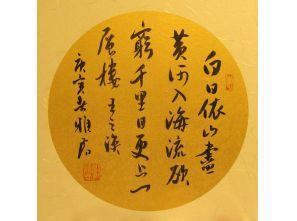 白日依山盡
黄河入海流欲
窮千里目更上一
層樓王之渙
庚寅春雅君